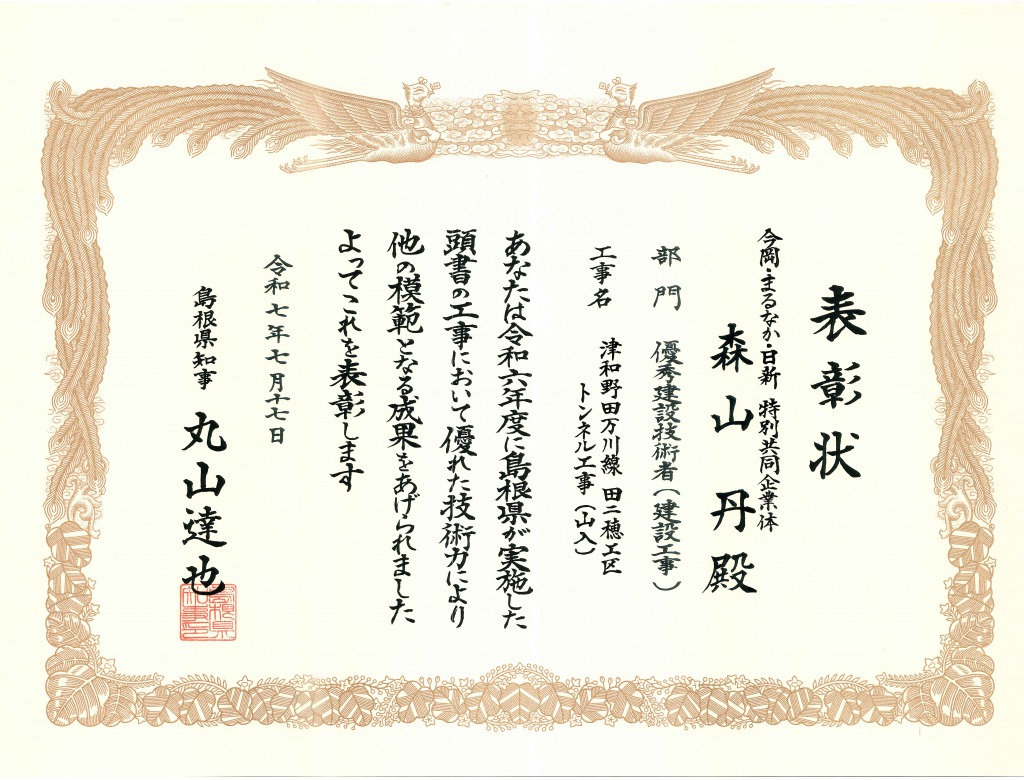 表彰状
今岡・まるなか・日新 特別共同企業体
森山 丹殿
部門 優秀建設技術者(建設工事)
工事名 津和野田万川線 田二穂工区
トンネル工事(山入)
あなたは令和六年度に島根県が実施した
頭書の工事において優れた技術力により
他の模範となる成果をあげられました
よってこれを表彰します
令和七年七月十七日
島根県知事 丸山達也
島根県知事之印